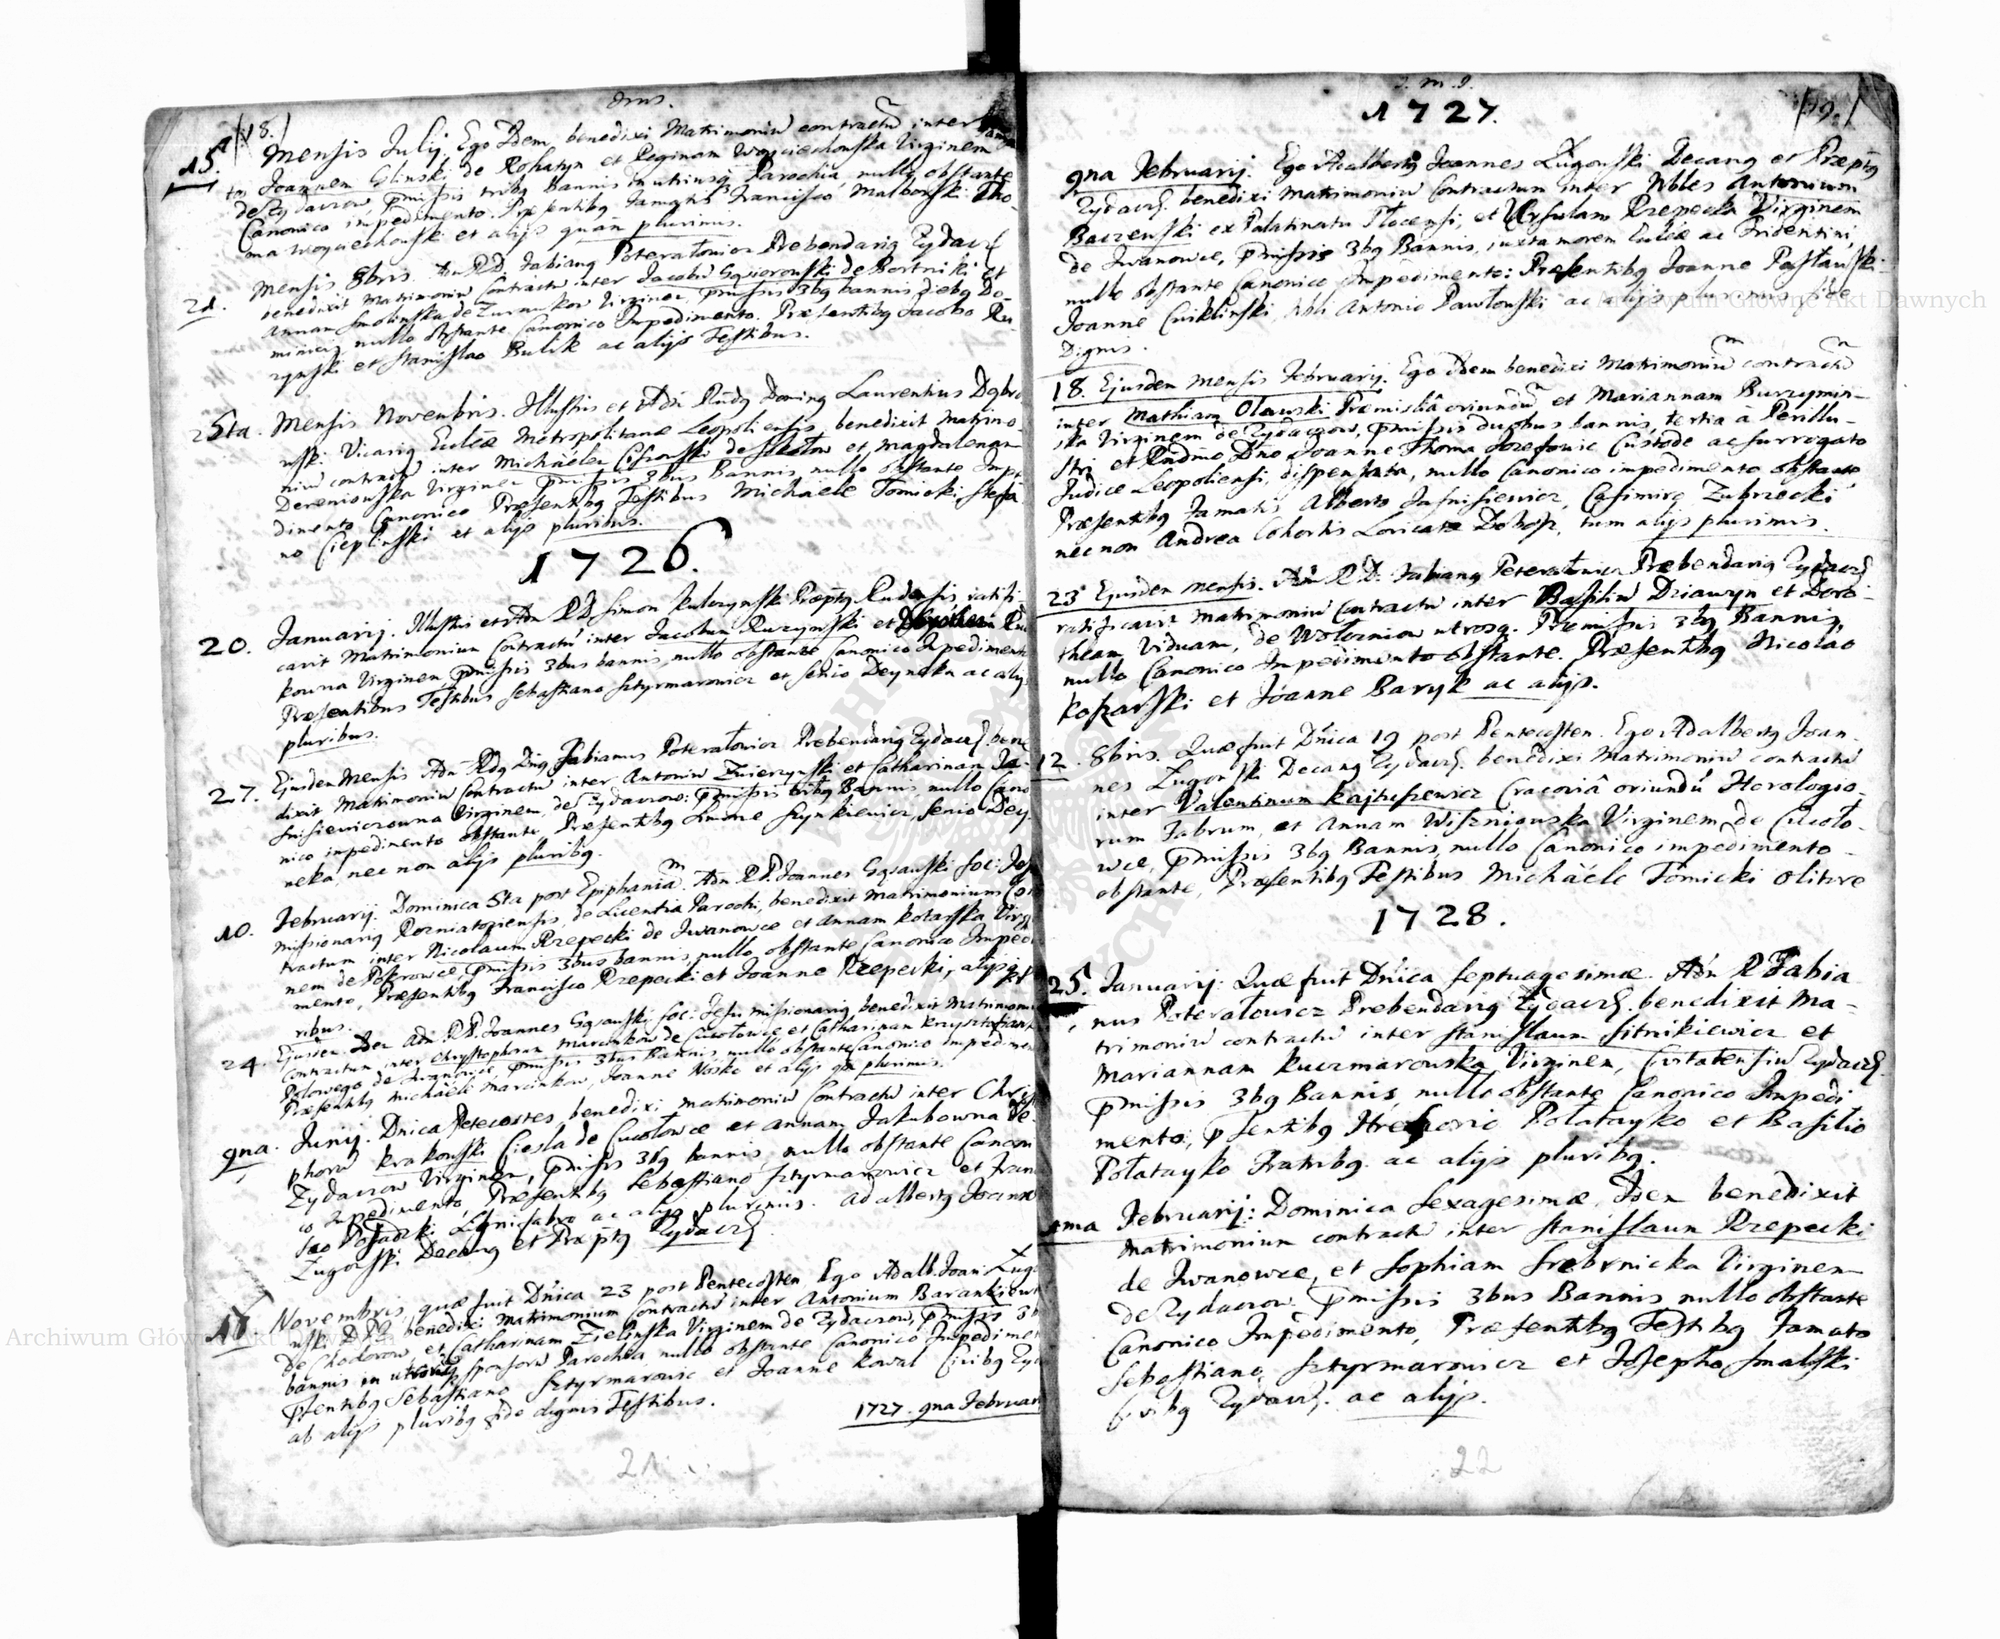 18.
15. Mensis Julij. Ego Idem benedixi Matrimoniū contractū inter
Joannem Glinski de Rohatyn et Reginam Woyciechowska Virginem
de Zydaczow, p̄missis tribg Bannis in utriusq Parochia, nullo obstante
Canonico impedimento. Præsentibg Famatis Francisco Malborski Tho-
ma Woyciechowski et alijs quàm plurimis.
21. Mensis 8bris. Adn RD Fabiang Poteratowicz Prebendarig Zydacz
benedixit Matrimoniū Contractū inter Jacobū Gąsiorowski de Bortniki et
Annam Smolinska de Zurawkow Virginem, p̄missis 3bg bannis diebg Do-
minicis nullo obstante Canonico Impedimento. Præsentibg Jacobo Ru-
zynski et Stanislao Bulik ac alijs Testibus.
25ta. Mensis Novembris. Illustris et Adn Rndg Doming Laurentius Dąbro
wski Vicarig Eccliæ Metropolitanæ Leopoliensis, benedixit Matrimo-
niū contractū inter Michäelem Cisowski de Stratow et Magdalenam
Dereniowska Virginem p̄missis 3bus Bannis, nullo obstante Impe
dimento Canonico Præsentibg Testibus Michäele Tomicki, Stefa
no Cieplinski et alijs pluribus.
1726.
20. Januarij. Illustris et Adn RD Simon Kulczynski Præptg Rudensis ratifi-
cavit Matrimonium Contractū inter Jacobum Ruzynski et
kowna Virginem p̄missis 3bus bannis, nullo obstante Canonico Impedimento
Præsentibus Testibus Sebastiano Sztyrmarowicz et Senio Deyneka ac alijs
pluribus.
27. Ejusdem Mensis Adn Rdg Dng Fabianus Poteratowicz Prebendarig Zydacz bene
dixit Matrimoniū Contractū inter Antoniū Zwierzynski et Catharinam Ja-
snisiewiczowna Virginem de Zydaczow: p̄missis tribg Bannis, nullo Cano
nico impedimento obstante, Præsentibg Simone Szynkiewicz, Senio Dey
neka, nec non alijs pluribg.
10. Februarij. Dominica 5ta post Epiphaniam. Adn R.P. Joannes Gąsawski Soc: Jesu
Missionarig Rozniatoviensis, de Licentia Parochi, benedixit Matrimonium Con
tractum inter Nicolaum Rzepecki de Iwanowce et Annam Kotarska Virgi
nem de Pokrowce, p̄missis 3bus bannis, nullo obstante Canonico Impedi
mento, Præsentibg Francisco Rzepecki et Joanne Rzepecki, alijs plu
ribus.
24. Ejusdem. Idem Adn R.P. Joannes Gąsawski Soc: Jesu Missionarig, benedixit Matrimoniū
Contractum inter Chrystophorum Marcinkow de Cucołowce et Catharinam
Polowego de Iwanowce, p̄missis 3bus Bannis, nullo obstante Canonico Impedimento
Præsentibg Michäele Marcinkow, Joanne Nosko et alijs quā plurimis.
9na. Junij. Dnica Petecostes, benedixi matrimoniū Contractū inter Christo
phorū Krakowski Ciesla de Cucołowce et Annam Jakubowna de
Zydaczow Virginem, p̄missis 3bg bannis, nullo obstante Canoni
co Impedimento, Præsentibg Sebastiano Sztyrmarowicz et
Posadzki Lignifabro ac alijs plurimis. Adalbertg Joannes
Lugowski Decang et Præptg Zydacz
18. Novembris, quæ fuit Dnica 23 post Pentecosten, Ego Adalb. Joan: Lug
wski D.P.Z. benedixi Matrimonium Contractū inter Antonium Barankiewicz
de Chodorow et Catharinam Zielinska Virginem de Zydaczow, p̄missis 3b
bannis in utriusq sponsorū Parochia, nullo obstante Canonico Impedimen
p̄sentibg Sebastiano Sztyrmarowic et Joanne Kowal Civibg Zyd
ab alijs pluribg fide dignis Testibus.
1727. 9na Februarij
21
J. M. J.
19.
1727.
9na Februarij. Ego Adalbertg Joannes Lugowski Decang et Præptg
Zydacz. benedixi Matrimoniū Contractum inter Nbles Antonium
Baczewski ex Palatinatu Plocensi, et Ursulam Rzepecka Virginem
de Iwanowce, p̄missis 3bg Bannis, juxta morem Eccliæ ac Tridentini,
nullo obstante Canonico impedimento: Præsentibg Joanne Pastawski
Joanne Cwiklinski, Nbli Antonio Pawłowski ac alijs plurimis fide
Dignis.
18. Ejusdem Mensis Februarij. Ego Idem benedixi Matrimoniū contractū
inter Mathiam Olawski Premisliâ oriundū et Mariannam Burzymin-
ska Virginem de Zydaczow, p̄missis duobus bannis, tertia à Perillu-
stri et Rndmo Dno Joanne Thoma Jozefowic Custode ac Surrogato
Judice Leopoliensi, dispensata, nullo Canonico impedimento obstante,
Præsentibg Famatis Alberto Jasnisiewicz, Casimiro Zubrzecki
nec non Andrea Cohortis Loricatæ Dobosz, tum alijs plurimis.
23 Ejusdem Mensis. Adn R.D. Fabiang Poteratowicz Præbendarig Zydacz
ratificavit Matrimoniū Contractū inter Basiliū Dziawyn et Doro-
theam Viduam, de Wolcniow utrosq. Præmissis 3bg Bannis,
nullo Canonico Impedimento obstante. Præsentibg Nicolao
Koszarski et Joanne Baryk ac alijs.
12. 8bris. Quæ fuit Dnica 19 post Pentecosten. Ego Adalbertg Joan-
nes Lugowski Decang Zydacz. benedixi Matrimoniū contractū
inter Valentinum Kajtuszewicz Cracoviâ oriundū Horologio-
rum Fabrum, et Annam Wiszniowska Virginem de Cucoło-
wce, p̄missis 3bg Bannis, nullo Canonico impedimento
obstante, Præsentibg Testibus Michäele Tomicki
1728.
25. Januarij: Quæ fuit Dnica Septuagesimæ. Adn R Fabia
nus Poteratowicz Prebendarig Zydacz. benedixit Ma-
trimoniū contractū inter Stanislaum Sitnikiewicz et
Mariannam Kuczmarowska Virginem, Civitatensiū Zydacz.
p̄missis 3bg Bannis, nullo obstante Canonico Impedi
mento, p̄sentibg Hrehorio Połatayko et Basilio
Połatayko Fratribg. ac alijs pluribg.
1ma Februarij: Dominica Sexagesimæ, Idem benedixit
Matrimonium contractū inter Stanislaum Rzepecki
de Iwanowce, et Sophiam Srebrnicka Virginem
de Zydaczow. p̄missis 3bus Bannis nullo obstante
Canonico Impedimento, Præsentibg Testibg Famato
Sebastiano Sztyrmarowicz et Josepho Smalski
Civibg Zydacz. ac alijs.
22
Archiwum Główne Akt Dawnych
Archiwum Główne Akt Dawnych